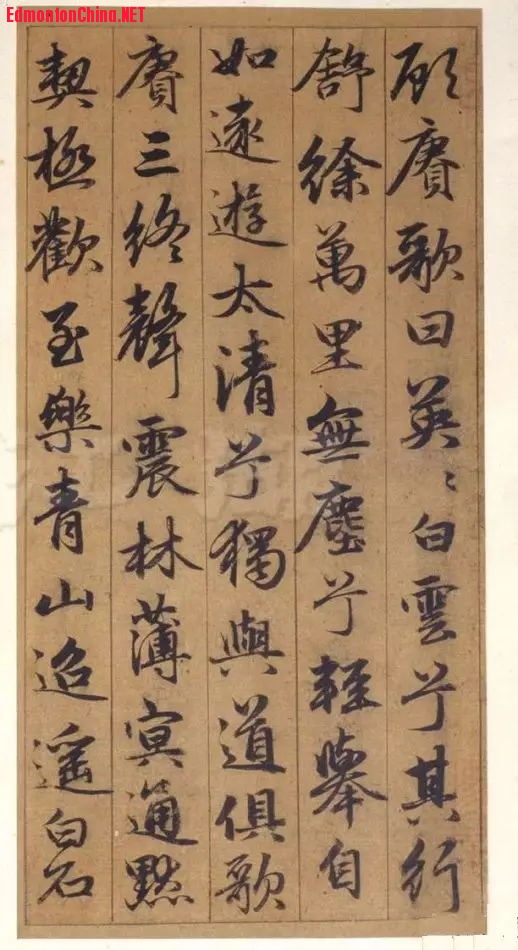 EdmontonChina.NET
顾賡歌曰英〻白雲兮其行
舒徐萬里無塵兮輕舉自
如遠遊太清兮獨與道俱歌
賡三終聲震林薄冥通黙
契極歡至樂青山迢遥白石